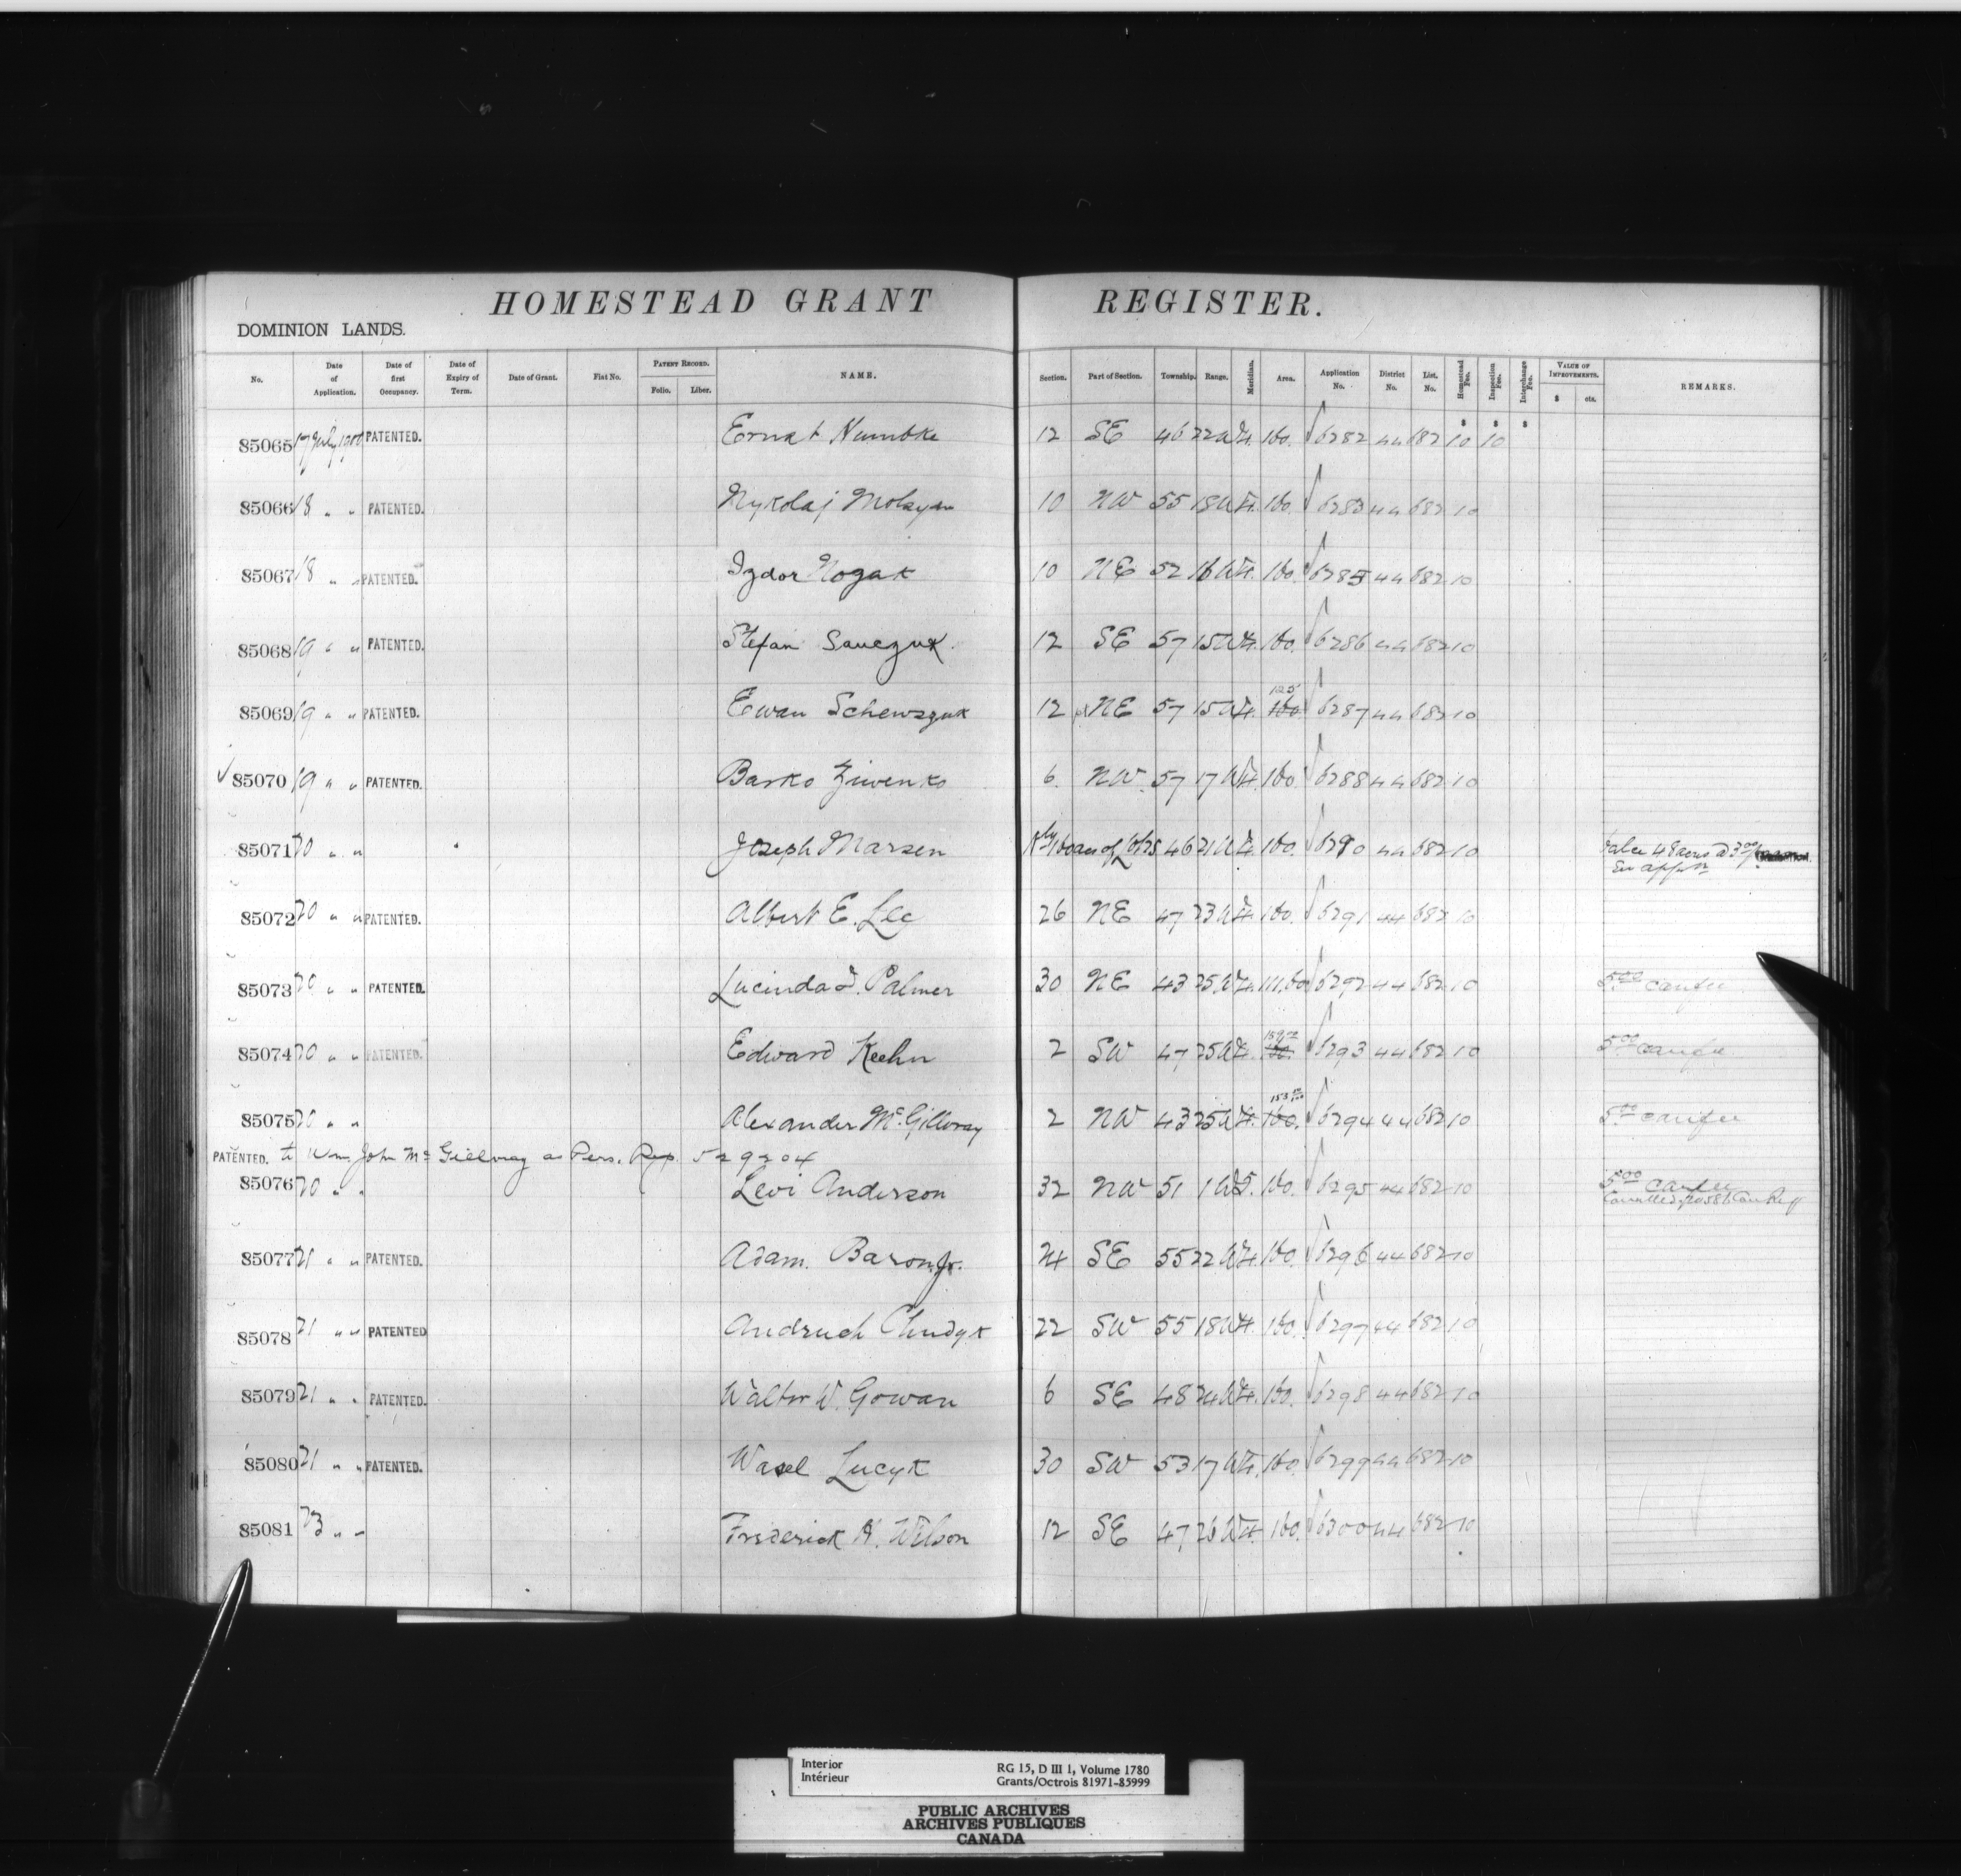 HOMESTEAD GRANT REGISTER.
DOMINION LANDS.
No. Date of Application. Date of first Occupancy. Date of Expiry of Term. Date of Grant. Fiat No. PATENT RECORD. Folio. Liber. NAME. Section. Part of Section. Township. Range. Meridian. Area. Application No. District No. List. No. Homestead Fee. Inspection Fee. Interchange Fee. VALUE OF IMPROVEMENTS. $ cts. REMARKS.
$ $ $
85065 17 July 190 PATENTED. 12 SE 46 22 W4. 160. 6282 44 682 10 10
85066 18 " " PATENTED. Nykolaj 10 NW 55 18 W4. 160. 6283 44 682 10
85067 18 " " PATENTED. Izdor Nozak 10 NE 52 16 W4. 160. 6285 44 682 10
85068 19 " " PATENTED. Stefan Sauczuk. 12 SE 57 15 W4. 160. 6286 44 682 10
125
85069 19 " " PATENTED. Ewan Schewszuk 12 NE 57 15 W4. 160 6287 44 682 10
85070 19 " " PATENTED. Basko Ziwenko 6. NW. 57 17 W4. 160 6288 44 682 10
85071 20 " " Joseph Marsen of 46 21 W4. 160. 6290 44 682 10 48 acres @ 3 00
85072 20 " " PATENTED. Albert E. Lee 26 NE 47 23 W4. 160. 6291 44 682 10
85073 20 " " PATENTED. Lucinda J. Palmer 30 NE 43 25 W4. 111.60 6292 44 682 10 5.00 canfee
159
85074 20 " " PATENTED. Edward Keehn 2 SW 47 25 W4. 160 6293 44 682 10 5.00 canfee
153
85075 20 " " Alexander McGillvray 2 NW 43 25 W4. 160. 6294 44 682 10 5.00 canfee
PATENTED. to Wm. John McGillvray as Pers. Rep. 529204
85076 20 " " Levi Anderson 32 NW 51 1 W5. 160. 6295 44 682 10 5.00 canfee
Cancelled
85077 21 " " PATENTED. Adam. Baron Jr. 24 SE 55 22 W4. 160. 6296 44 682 10
85078 21 " " PATENTED Andruch Chudyk 22 SW 55 18 W4. 160. 6297 44 682 10
85079 21 " " PATENTED. Walter W. Gowan 6 SE 48 24 W4. 160. 6298 44 682 10
85080 21 " " PATENTED. Wasel Lucyk 30 SW 53 17 W4. 160. 6299 44 682 10
85081 23 " " Frederick H. Wilson 12 SE 47 26 W4. 160. 6300 44 682 10
Interior
Intérieur
RG 15, D III 1, Volume 1780
Grants/Octrois 81971-85999
PUBLIC ARCHIVES
ARCHIVES PUBLIQUES
CANADA